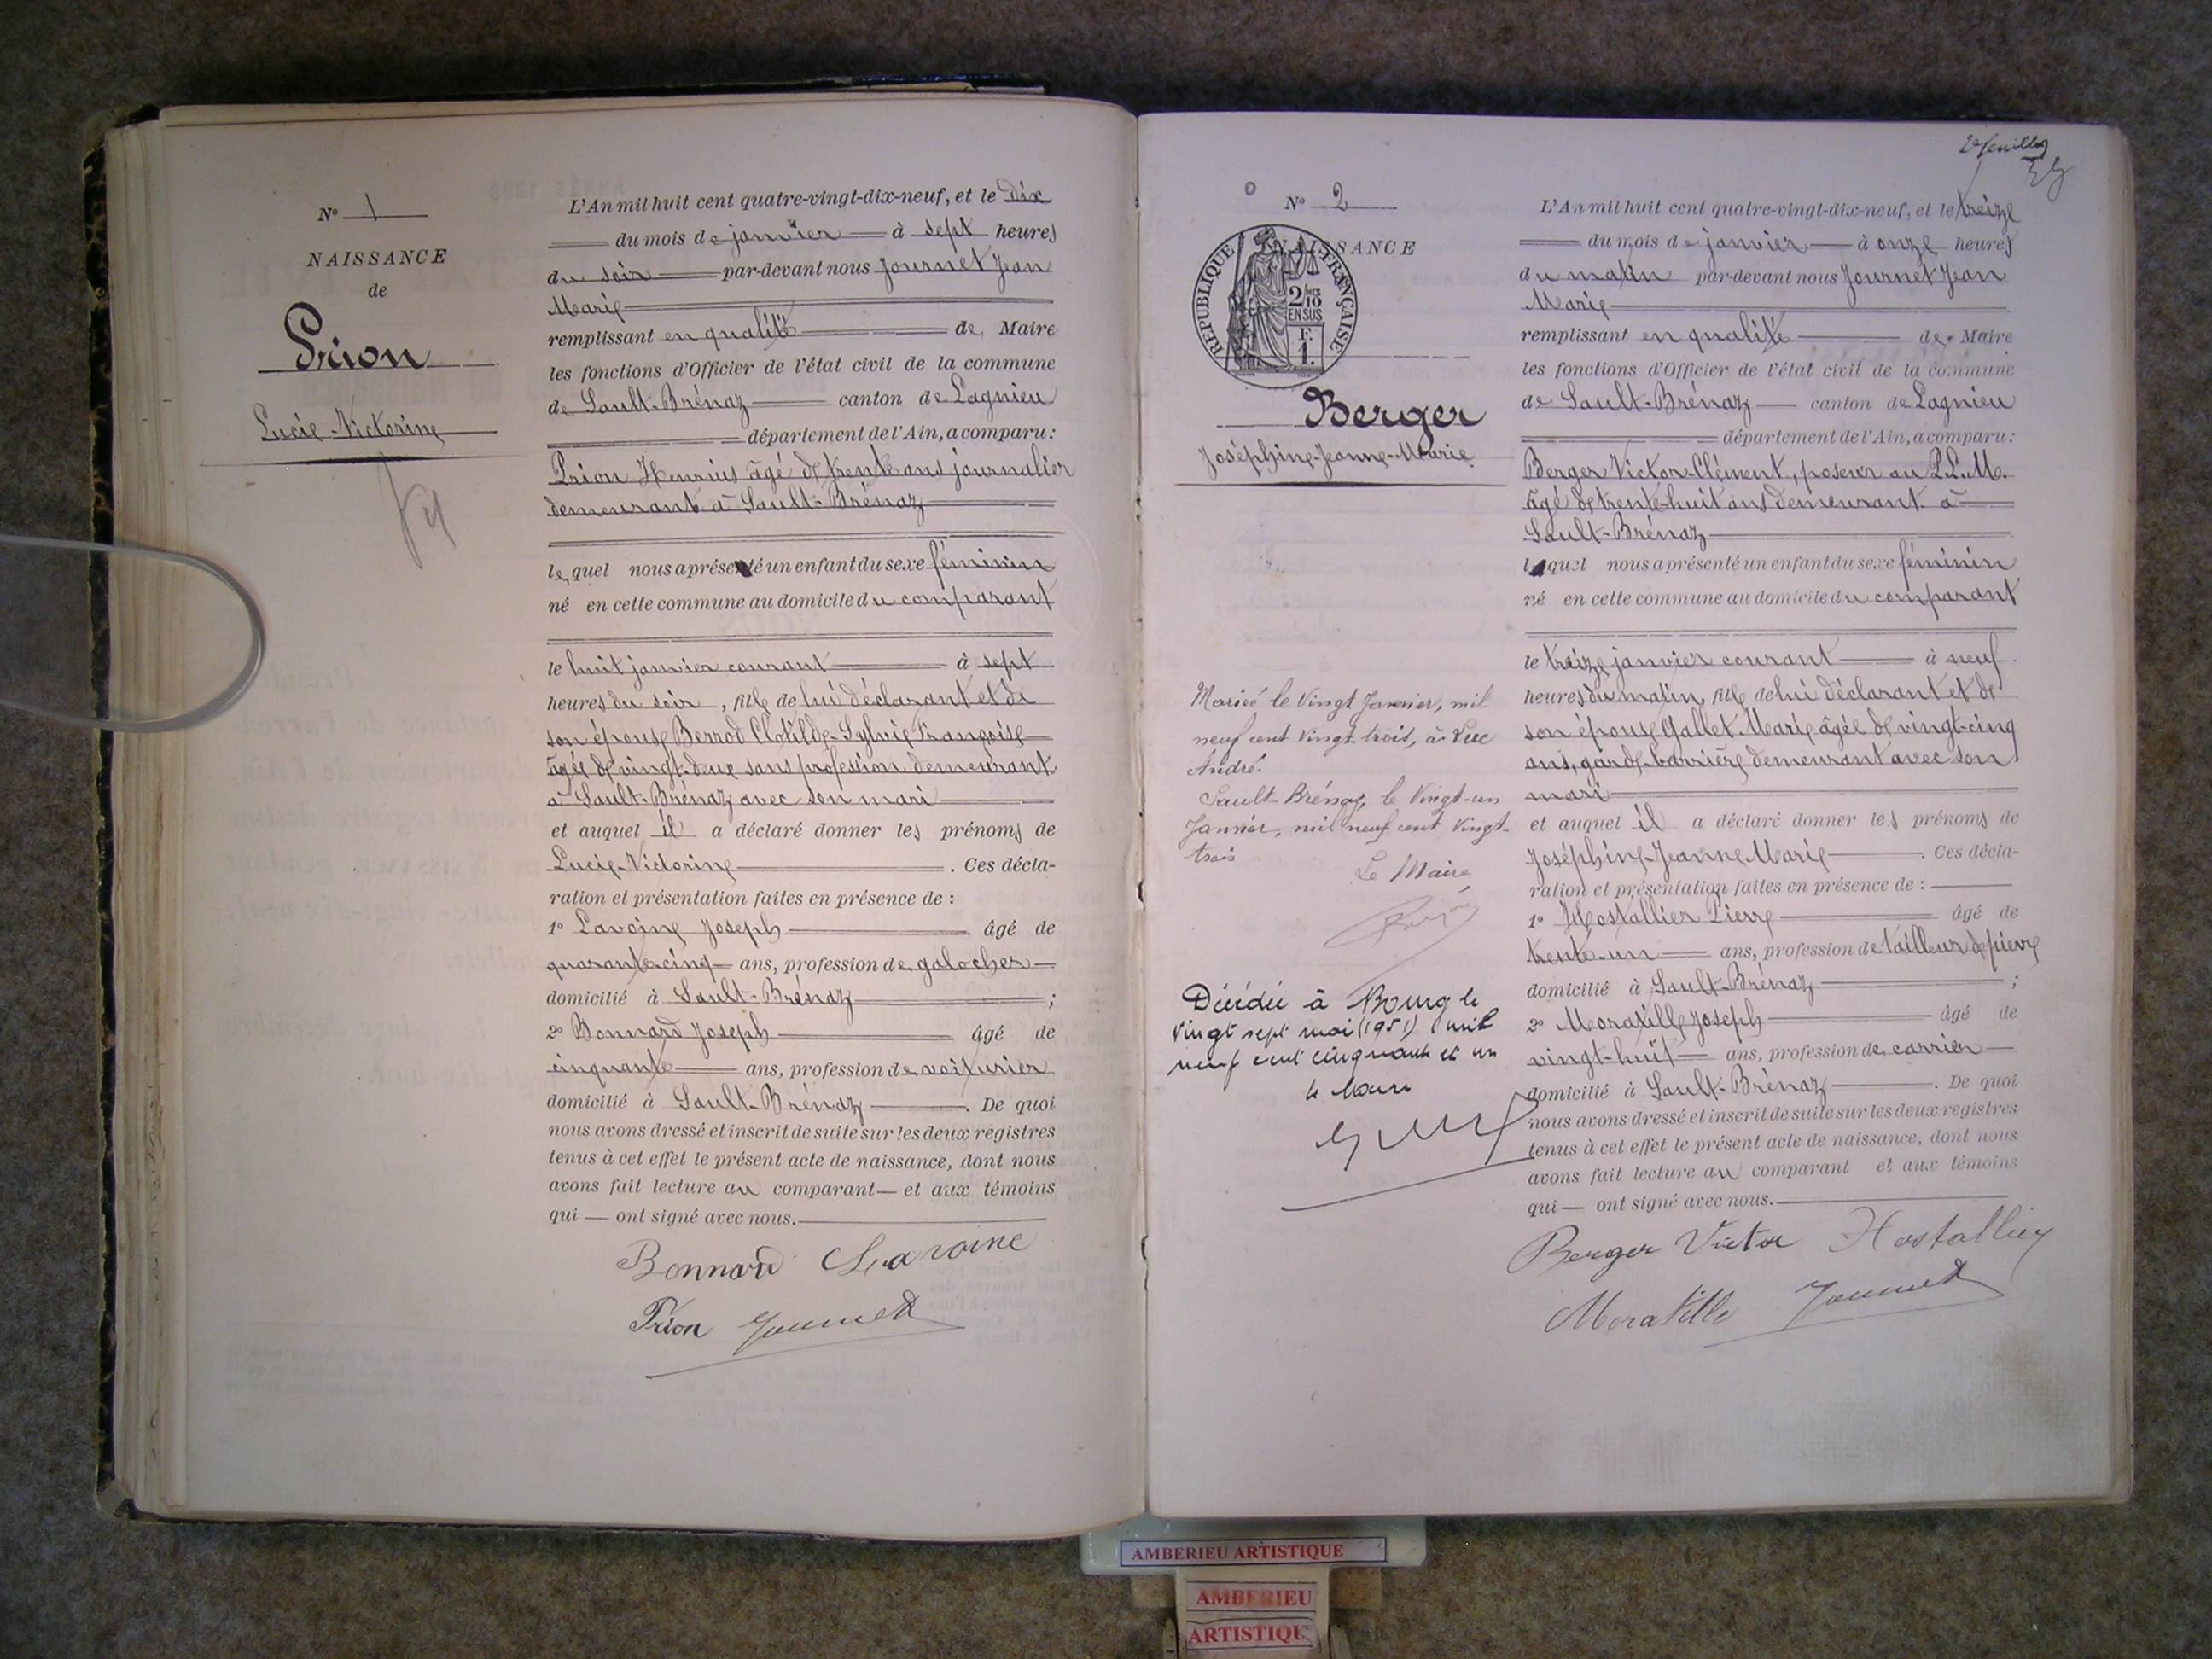 N° 1
NAISSANCE
de
Prion
Lucie-Victorine
L'An mil huit cent quatre-vingt-dix-neuf, et le dix
du mois de janvier à sept heures
du soir par-devant nous Journet Jean
Marie
remplissant en qualité de Maire
les fonctions d'Officier de l'état civil de la commune
de Sault-Brénaz canton de Lagnieu
département de l'Ain, a comparu:
Prion Henrius âgé de trente ans journalier
demeurant à Sault-Brénaz
lequel nous a présenté un enfant du sexe féminin
né en cette commune au domicile du comparant
le huit janvier courant à sept
heures du soir, fille de lui déclarant et de
son épouse Berrod Clotilde-Sylvie Françoise
âgée de vingt-deux sans profession demeurant
à Sault-Brénaz avec son mari
et auquel il a déclaré donner les prénoms de
Lucie-Victorine. Ces décla-
ration et présentation faites en présence de :
1° Lavoine Joseph âgé de
quarante-cinq ans, profession de galocher
domicilié à Sault-Brénaz ;
2° Bonnard Joseph âgé de
cinquante ans, profession de voiturier
domicilié à Sault-Brénaz. De quoi
nous avons dressé et inscrit de suite sur les deux registres
tenus à cet effet le présent acte de naissance, dont nous
avons fait lecture au comparant et aux témoins
qui ont signé avec nous.
Bonnard Lavoine
Prion Journet
2e feuillet
N° 2
NAISSANCE
RÉPUBLIQUE FRANÇAISE
2/10
EN SUS
F.
1.
Berger
Joséphine-Jeanne-Marie
Mariée le Vingt Janvier, mil
neuf cent Vingt-trois, à Luc
André.
Sault-Brénaz, le Vingt-un
Janvier, mil neuf cent Vingt-
trois
Le Maire,
Décédée à Bourg le
vingt sept mai (1951) mil
neuf cent cinquante et un
le Maire
L'An mil huit cent quatre-vingt-dix-neuf, et le treize
du mois de janvier à onze heures
du matin par-devant nous Journet Jean
Marie
remplissant en qualité de Maire
les fonctions d'Officier de l'état civil de la commune
de Sault-Brénaz canton de Lagnieu
département de l'Ain, a comparu:
Berger Victor-Clément, poseur au P.L.M.
âgé de trente-huit ans demeurant à
Sault-Brénaz
lequel nous a présenté un enfant du sexe féminin
né en cette commune au domicile du comparant
le treize janvier courant à neuf
heures du matin, fille de lui déclarant et de
son épouse Gallet Marie âgée de vingt-cinq
ans, garde-barrière demeurant avec son
mari
et auquel il a déclaré donner les prénoms de
Joséphine-Jeanne Marie. Ces décla-
ration et présentation faites en présence de :
1° Hostallier Pierre âgé de
trente-un ans, profession de tailleur de pierre
domicilié à Sault-Brénaz ;
2° Moratille Joseph âgé de
vingt-huit ans, profession de carrier
domicilié à Sault-Brénaz. De quoi
nous avons dressé et inscrit de suite sur les deux registres
tenus à cet effet le présent acte de naissance, dont nous
avons fait lecture au comparant et aux témoins
qui ont signé avec nous.
Berger Victor Hostallier
Moratille Journet
AMBERIEU ARTISTIQUE
AMBERIEU
ARTISTIQU